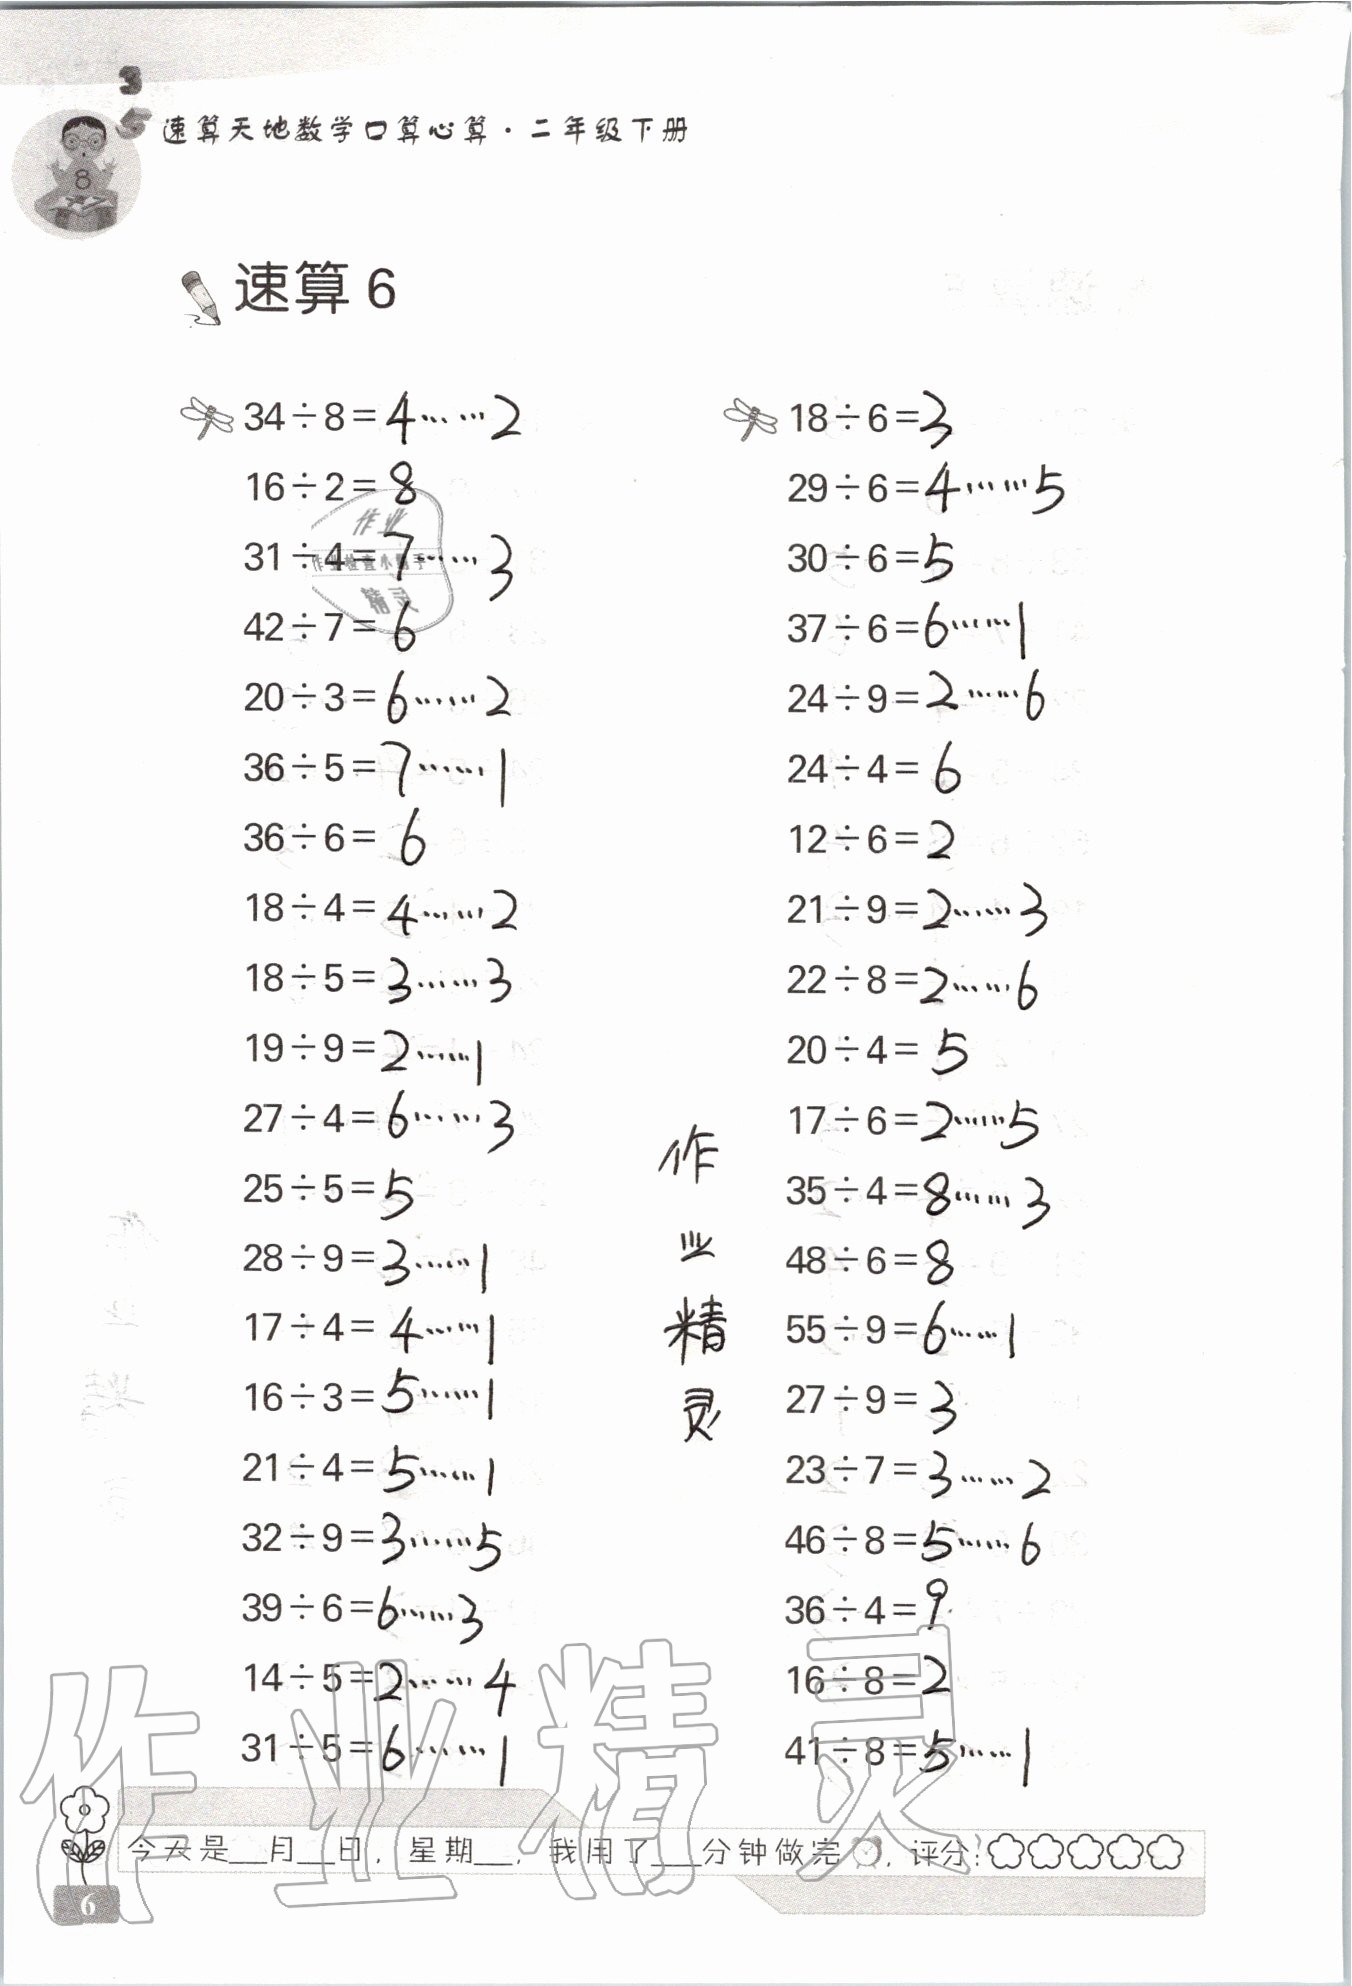 速算天地数学口算心算·二年级下册
8
速算 6
34÷8=4……2
16÷2=8
31÷4=7……3
42÷7=6
20÷3=6……2
36÷5=7……1
36÷6=6
18÷4=4……2
18÷5=3……3
19÷9=2……1
27÷4=6……3
25÷5=5
28÷9=3……1
17÷4=4……1
16÷3=5……1
21÷4=5……1
32÷9=3……5
39÷6=6……3
14÷5=2……4
31÷5=6……1
18÷6=3
29÷6=4……5
30÷6=5
37÷6=6……1
24÷9=2……6
24÷4=6
12÷6=2
21÷9=2……3
22÷8=2……6
20÷4=5
17÷6=2……5
35÷4=8……3
48÷6=8
55÷9=6……1
27÷9=3
23÷7=3……2
46÷8=5……6
36÷4=9
16÷8=2
41÷8=5……1
作业
作业检查小助手
精灵
作业精灵
作业精灵
今天是___月___日，星期___，我用了___分钟做完，评分：
6